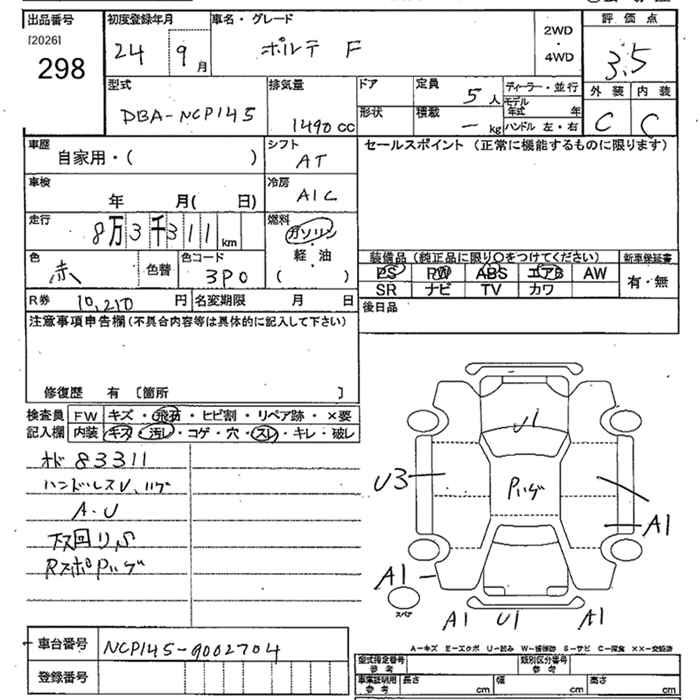 出品番号
[2026]
298
初度登録年月
24 9月
車名・グレード
ポルテ F
2WD
・
4WD
評価点
3.5
外装 内装
C C
型式
DBA-NCP145
排気量
1490cc
ドア
形状
定員
5人
積載
— kg
ディーラー・並行
モデル年式 年
ハンドル 左・右
車歴
自家用・( )
シフト
AT
セールスポイント(正常に機能するものに限ります)
車検
年 月( 日)
冷房
A/C
走行
8万3千311km
燃料
ガソリン
・
軽油
( )
色
赤
色替
色コード
3P0
装備品(純正品に限り○をつけてください)
PS PW ABS エアB AW
SR ナビ TV カワ
新車保証書
有・無
R券 10,210円
名変期限 月 日
後日品
注意事項申告欄(不具合内容等は具体的に記入して下さい)
修復歴 有 [箇所 ]
検査員記入欄
FW キズ・飛石・ヒビ割・リペア跡・×要
内装 キズ・汚レ・コゲ・穴・スレ・キレ・破レ
オド83311
ハンドルスレ、ハゲ
A・U
下回りS
RスポPハゲ
U1
U3
Pハゲ
A1
A1
A1 U1 A1
スペア
車台番号 NCP145-9002704
登録番号
A-キズ E-エクボ U-凹み W-補修跡 S-サビ C-腐食 ××-交換済
型式指定番号 参考
類別区分番号 参考
車業証明用 参考
長さ cm
幅 cm
高さ cm